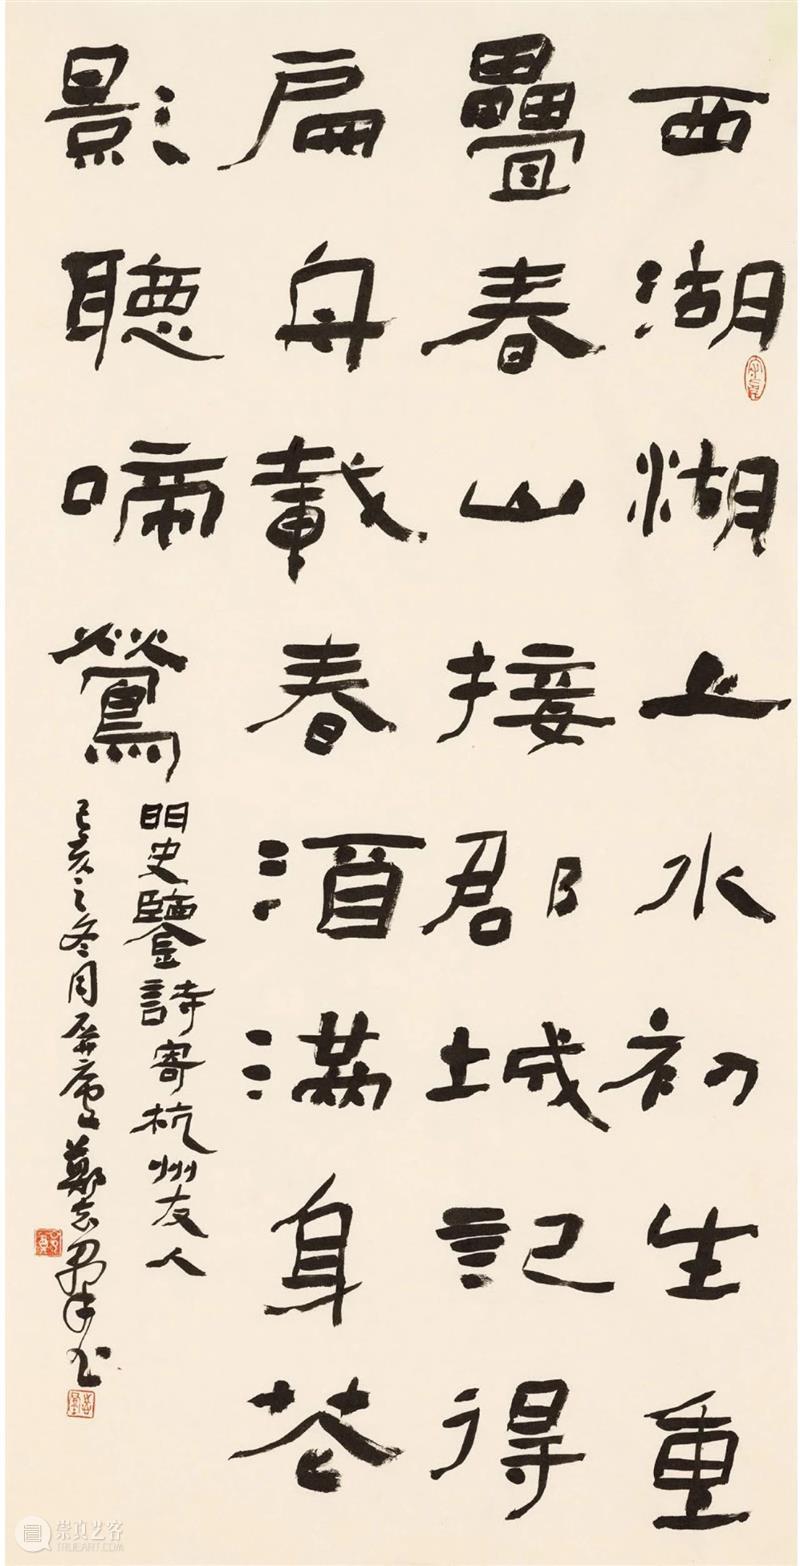 西湖湖上水初生重
疊春山接郡城記得
扁舟載春酒滿身花
影聽啼鶯
明史鑒詩寄杭州友人
己亥之冬月屏鄭志書
崇真艺客